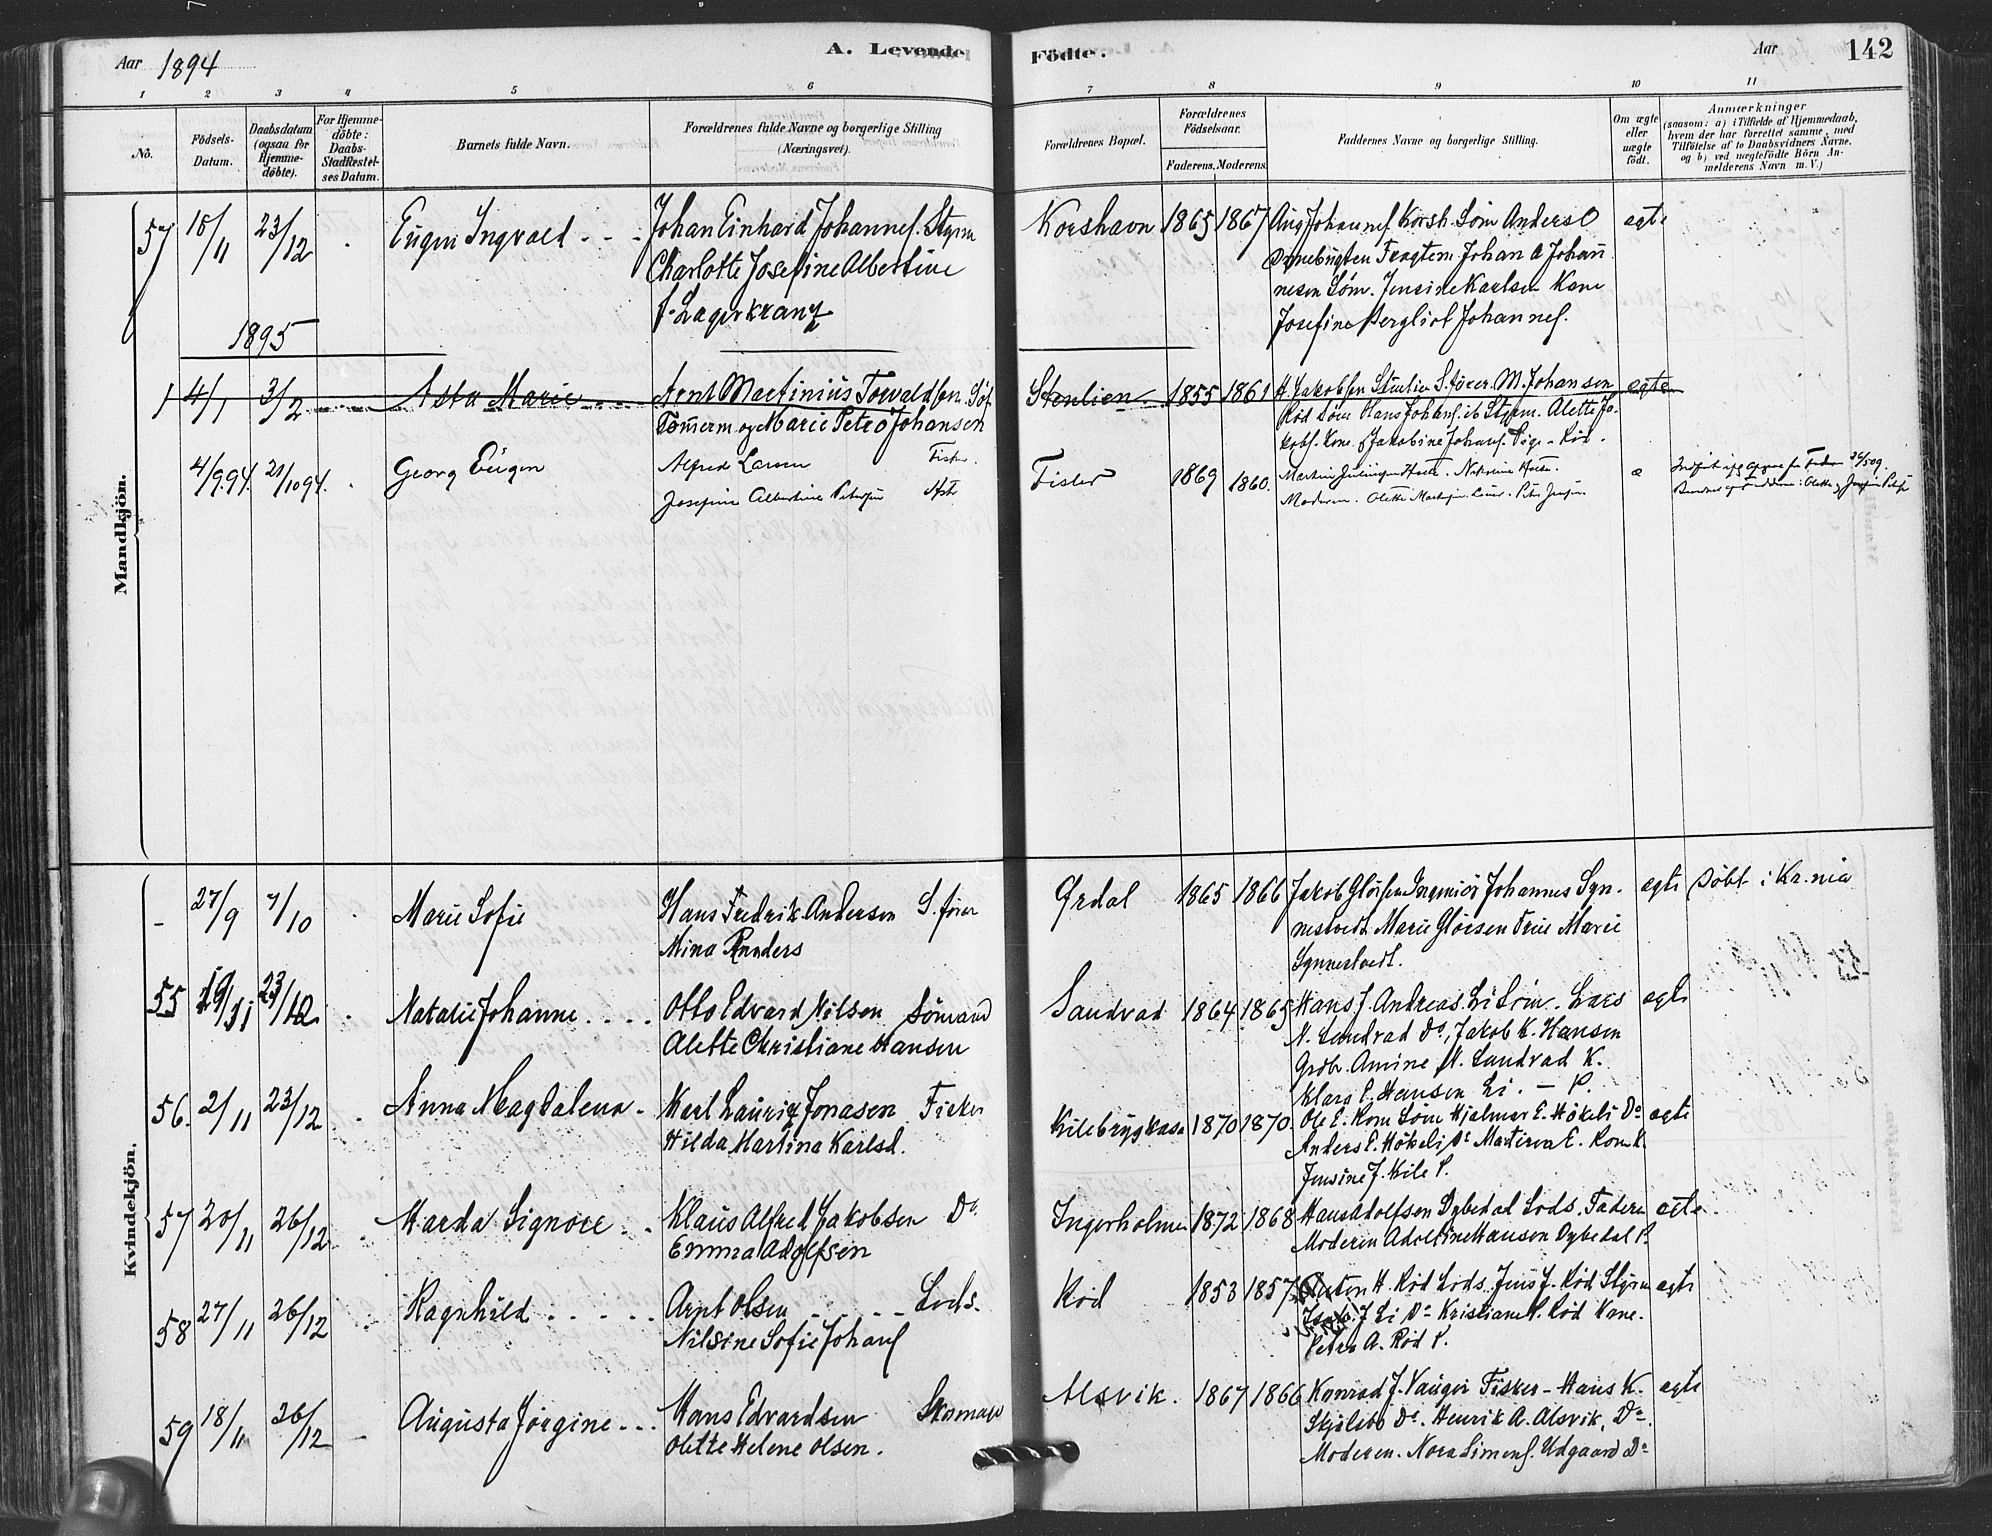 Aar 1894
A. Levende
Födte.
Aar
142
1 2 3 4 5 6 7 8 9 10 11
No.
Födsels-
Datum.
Daabsdatum
(ogsaa for
Hjemme-
döbte).
For Hjemme-
döbte:
Daabs-
Stadfæstel-
ses Datum.
Barnets fulde Navn.
Forældrenes fulde Navne og borgerlige Stilling
(Næringsvei).
Forældrenes Bopæl.
Forældrenes
Födselsaar.
Faderens. Moderens.
Faddernes Navne og borgerlige Stilling.
Om ægte
eller
uægte
födt.
Anmærkninger
(saasom: a) i Tilfælde af Hjemmedaab,
hvem der har forrettet samme, med
Tilföielse af to Daabsvidners Navne.
og b) ved uægtefödte Börn An-
melderens Navn m. V.)
Mandkjön.
57 18/11 23/12 Eugen Ingvald Johan Einhard Johannes. Styrm
Charlotte Josefine Albertine
f. Lagerkranz
Korshavn 1865 1867 Aug Johannes Korsh. Søm Anders O
Fragtem. Johan A Johan
nesen Søm. Jensine Karlsen Kone
Josefine Bergliot Johannes.
ægte
1895
1 4/1 3/2 Asta Marie Arnt Martinius Torvaldsen
Tømerm og Marie Petra Johansen
Stenlien 1855 1861 H. Jakobsen Stenlien S. fører. M. Johansen
Rød Søm Hans Johans. ib Styrm. Alette Ja-
kobs. Kone Jakobine Johans. Pige - Rød.
ægte
4/9.94. 21/10 94. Georg Eugen Alfred Larsen Fisker.
Josefine Albertine
Fisler 1869 1860.
Moderen. Olette
Kvindekjön.
- 27/9 7/10 Marie Sofie Hans Fredrik Andersen S. fører
Mina Randers
Ørdal 1865 1866 Jakob Glørsen Ingeniør Johannes Syn-
nestvedt Marie Glørsen Frue Marie
Synnestvedt.
ægte Døbt i Kr.nia
55 19/11 23/12 Natalie Johanne Otto Edvard Nilsen Sømand
Alette Christiane Hansen
Sandvad 1864 1865 Hans J. Andreas. Li Søm. Lars
N. Sandvad Do, Jakob K. Hansen
Grdbr. Amine M. Sandvad K.
Klara P. Hansen Li. - P.
ægte
56. 2/11 23/12 Anna Magdalena Karl Lauriz Jonasen Fisker
Hilda Martina Karlsd.
Kilebrygkasa 1870 1870. Ole E. Rom Søm Hjalmar E. Høkeli Do
Anders E. Høkeli Do Martina E. Rom K.
Jensine J. Kile P.
ægte
57 20/11 26/12 Marda Signore Klaus Alfred Jakobsen Do.
Emma Adolfsen
Ingerholmen 1872 1868 Hans Adolfsen Dybedal Lods. Faderen
Moderen Adolfine Hansen Dybedal P.
ægte
58 27/11 26/12 Ragnhild Arnt Olsen Lods.
Nilsine Sofie Johans
Rød 1853 1857 Anton H. Rød Lods. Jens J. Rød Styrm
J Li Do Kristiane H. Rød Kone.
Petra A. Rød P.
ægte
59 18/11 26/12 Augusta Jørgine Hans Edvardsen Skomager
Olette Helene Olsen.
Alsvik. 1867 1866 Konrad J. Vauger Fisker - Hans K.
Skjelsbo Do. Henrik A. Alsvik. Do.
Moderen. Nora Simens. Udgaard Do
ægte